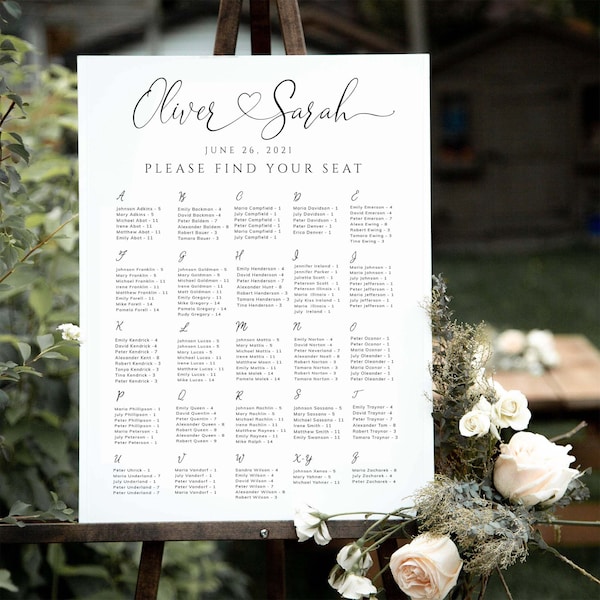 Oliver Sarah
JUNE 26, 2021
PLEASE FIND YOUR SEAT
A
Johnson Adkins - 5
Mary Adkins - 5
Michael Abat - 11
Irene Abat - 11
Matthew Abat - 11
Emily Abat - 11
B
Emily Backman - 4
David Backman - 4
Peter Baldem - 7
Alexander Baldem - 7
Robert Bauer - 3
Tamara Bauer - 3
C
Maria Campfield - 1
July Campfield - 1
Peter Campfield - 1
Peterson Campfield - 1
Maria Campfield - 1
July Campfield - 1
D
Maria Davidson - 1
July Davidson - 1
Peter Davidson - 1
Erica Denver - 1
E
Emily Emerson - 4
David Emerson - 4
Peter Emerson - 7
Alena Ewing - 8
Robert Ewing - 3
Tamara Ewing - 3
Tina Ewing - 3
F
Johnson Franklin - 5
Mary Franklin - 5
Michael Franklin - 11
Irene Franklin - 11
Matthew Franklin - 11
Emily Forell - 11
Mike Forell - 14
Pamela Forell - 14
G
Johnson Goldman - 5
Mary Goldman - 5
Michael Goldman - 11
Irene Goldman - 11
Matthew Goldman - 11
Emily Gregory - 11
Mike Gregory - 14
Pamela Gregory - 14
Rudy Gregory - 14
H
Emily Henderson - 4
David Henderson - 4
Peter Henderson - 7
Alexander Henderson - 7
Robert Henderson - 3
Tamara Henderson - 3
Tina Henderson - 3
I
Jennifer Ireland - 1
Jennifer Parker - 5
Julietta Scott - 1
Peterson Illinois - 1
Maria Illinois - 1
July Illinois - 1
July Rosa Ireland - 1
Peter Ireland - 1
July Ireland - 1
J
Maria Johnson - 1
July Johnson - 1
Peter Johnson - 1
Peterson Johnson - 1
Maria Jefferson - 1
July Jefferson - 1
Peter Jefferson - 1
July Jefferson - 1
K
Emily Kendrick - 4
David Kendrick - 4
Peter Kendrick - 7
Robert Kendrick - 3
Tanya Kendrick - 3
Tina Kendrick - 3
L
Johnson Lucas - 5
Mary Lucas - 5
Michael Lucas - 11
Irene Lucas - 11
Matthew Lucas - 11
Pamela Lucas - 14
M
Johnson Mattis - 5
Mary Mattis - 5
Michael Mattis - 11
Irene Mattis - 11
Mike Malek - 14
Pamela Malek - 14
N
Emily Norton - 4
David Norton - 4
Peter Naverland - 7
Alexander Noell - 8
Robert Norton - 3
Tamara Norton - 3
O
Peter Oconor - 1
Peterson Oconor - 1
Maria Oconor - 1
July Oconor - 1
Peter Oconor - 1
July Oconor - 1
P
Maria Phillipson - 1
July Phillipson - 1
Peter Phillipson - 1
Peterson Phillipson - 1
Maria Phillipson - 1
July Phillipson - 1
Q
Emily Queen - 4
David Queen - 4
Peter Queen - 7
Alexander Queen - 8
Robert Queen - 9
Alexander Queen - 8
R
Johnson Rachlin - 5
Mary Rachlin - 5
Michael Rachlin - 11
Irene Raynes - 11
Matthew Raynes - 11
Emily Raynes - 11
Mike Raynes - 14
S
Johnson Sassano - 5
Mary Sassano - 5
Michael Sassano - 11
Irene Smith - 11
Matthew Smith - 11
Emily Swanson - 11
T
Emily Traynor - 4
David Traynor - 4
Peter Traynor - 7
Alexander Tom - 8
Robert Traynor - 3
Tamara Traynor - 3
U
Peter Uhlrick - 1
Mary Underland - 1
July Underland - 1
Peter Underland - 1
July Underland - 1
V
Maria Vandorf - 1
July Vandorf - 1
Peter Vandorf - 1
Peterson Vandorf - 1
Maria Vandorf - 1
W
Sandra Wilson - 4
Emily Wilson - 4
David Wilson - 4
Peter Wilson - 7
Alexander Wilson - 8
Robert Wilson - 3
X-Y
Johnson Xenos - 5
Michael Yehner - 11
Z
Maria Zacharek - 8
Peter Zacharek - 1